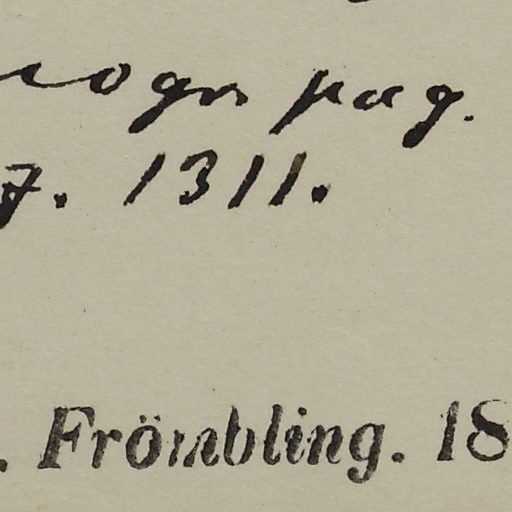 nogr pag.
7. 1311.
. Frömbling. 18